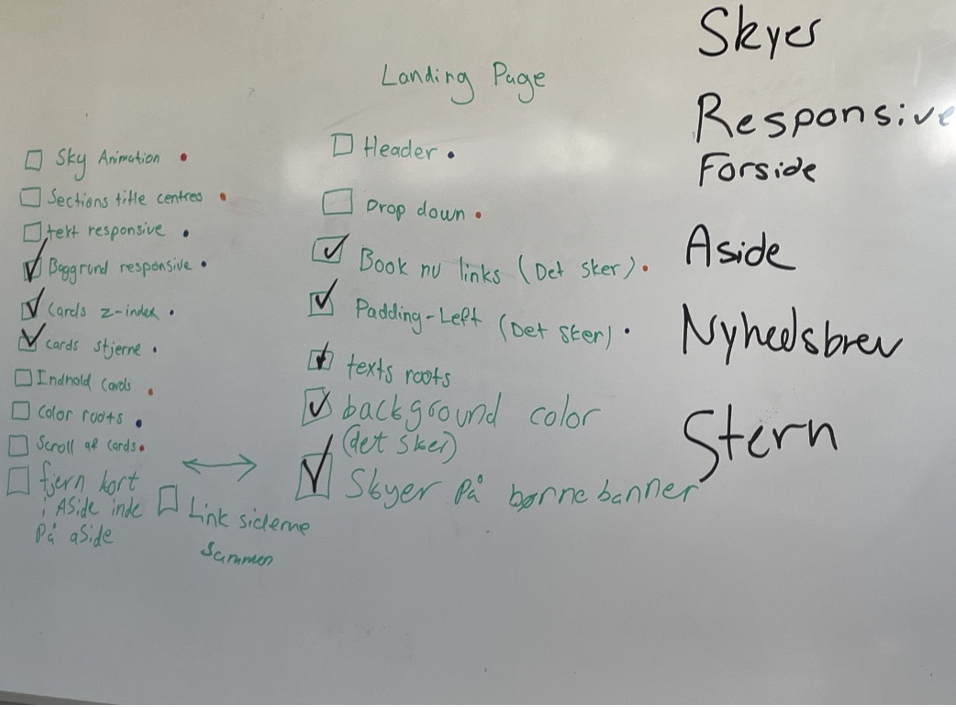 Landing Page
Sky Animation
Sections title centres
text responsive
Baggrund responsive
Cards z-index
cards stjerne
Indhold Cards
Color roots
Scroll af cards
fjern kort
i Aside inde
På aside
Link siderne
sammen
Header
Drop down
Book nu links (Det sker)
Padding-Left (Det sker)
texts roots
background color
(det sker)
Skyer På børne banner
Skyer
Responsive
Forside
Aside
Nyhedsbrev
Stern